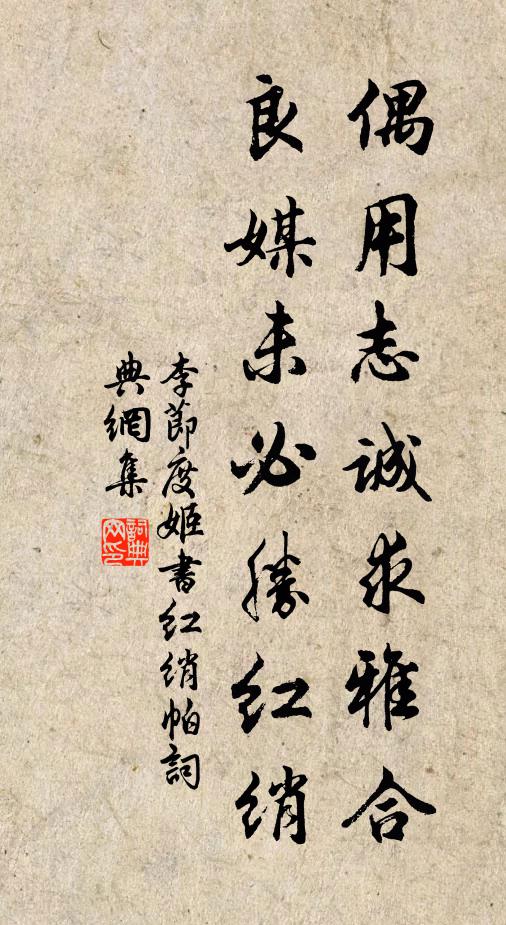 偶用志诚求雅合
良媒未必勝红绡
李節度姬書红绡帕詞
典網集
詞典網印